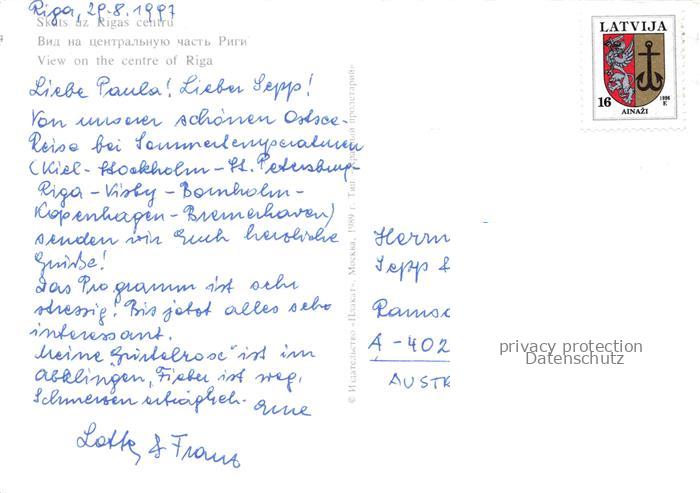 Riga, 29.8.1997
Skats uz Rīgas centru
Вид на центральную часть Риги
View on the centre of Riga
Liebe Paula! Lieber Sepp!
Von unserer schönen Ostsee-
Reise bei Sommertemperaturen
(Kiel-Stockholm-St. Petersburg-
Riga-Visby-Bornholm-
Kopenhagen-Bremerhaven)
senden wir Euch herzliche
Grüße!
Das Programm ist sehr
stressig! Bis jetzt alles sehr
interessant.
Meine „Gürtelrose" ist im
Abklingen, Fieber ist weg,
Schmerzen erträglich. Eure
Lotte & Franz
© Издательство «Плакат». Москва, 1989 г. Тип. «Красный пролетарий»
LATVIJA
16
1996
E
AINAŽI
Herrn
Sepp &
Rams
A-402
AUST
privacy protection
Datenschutz